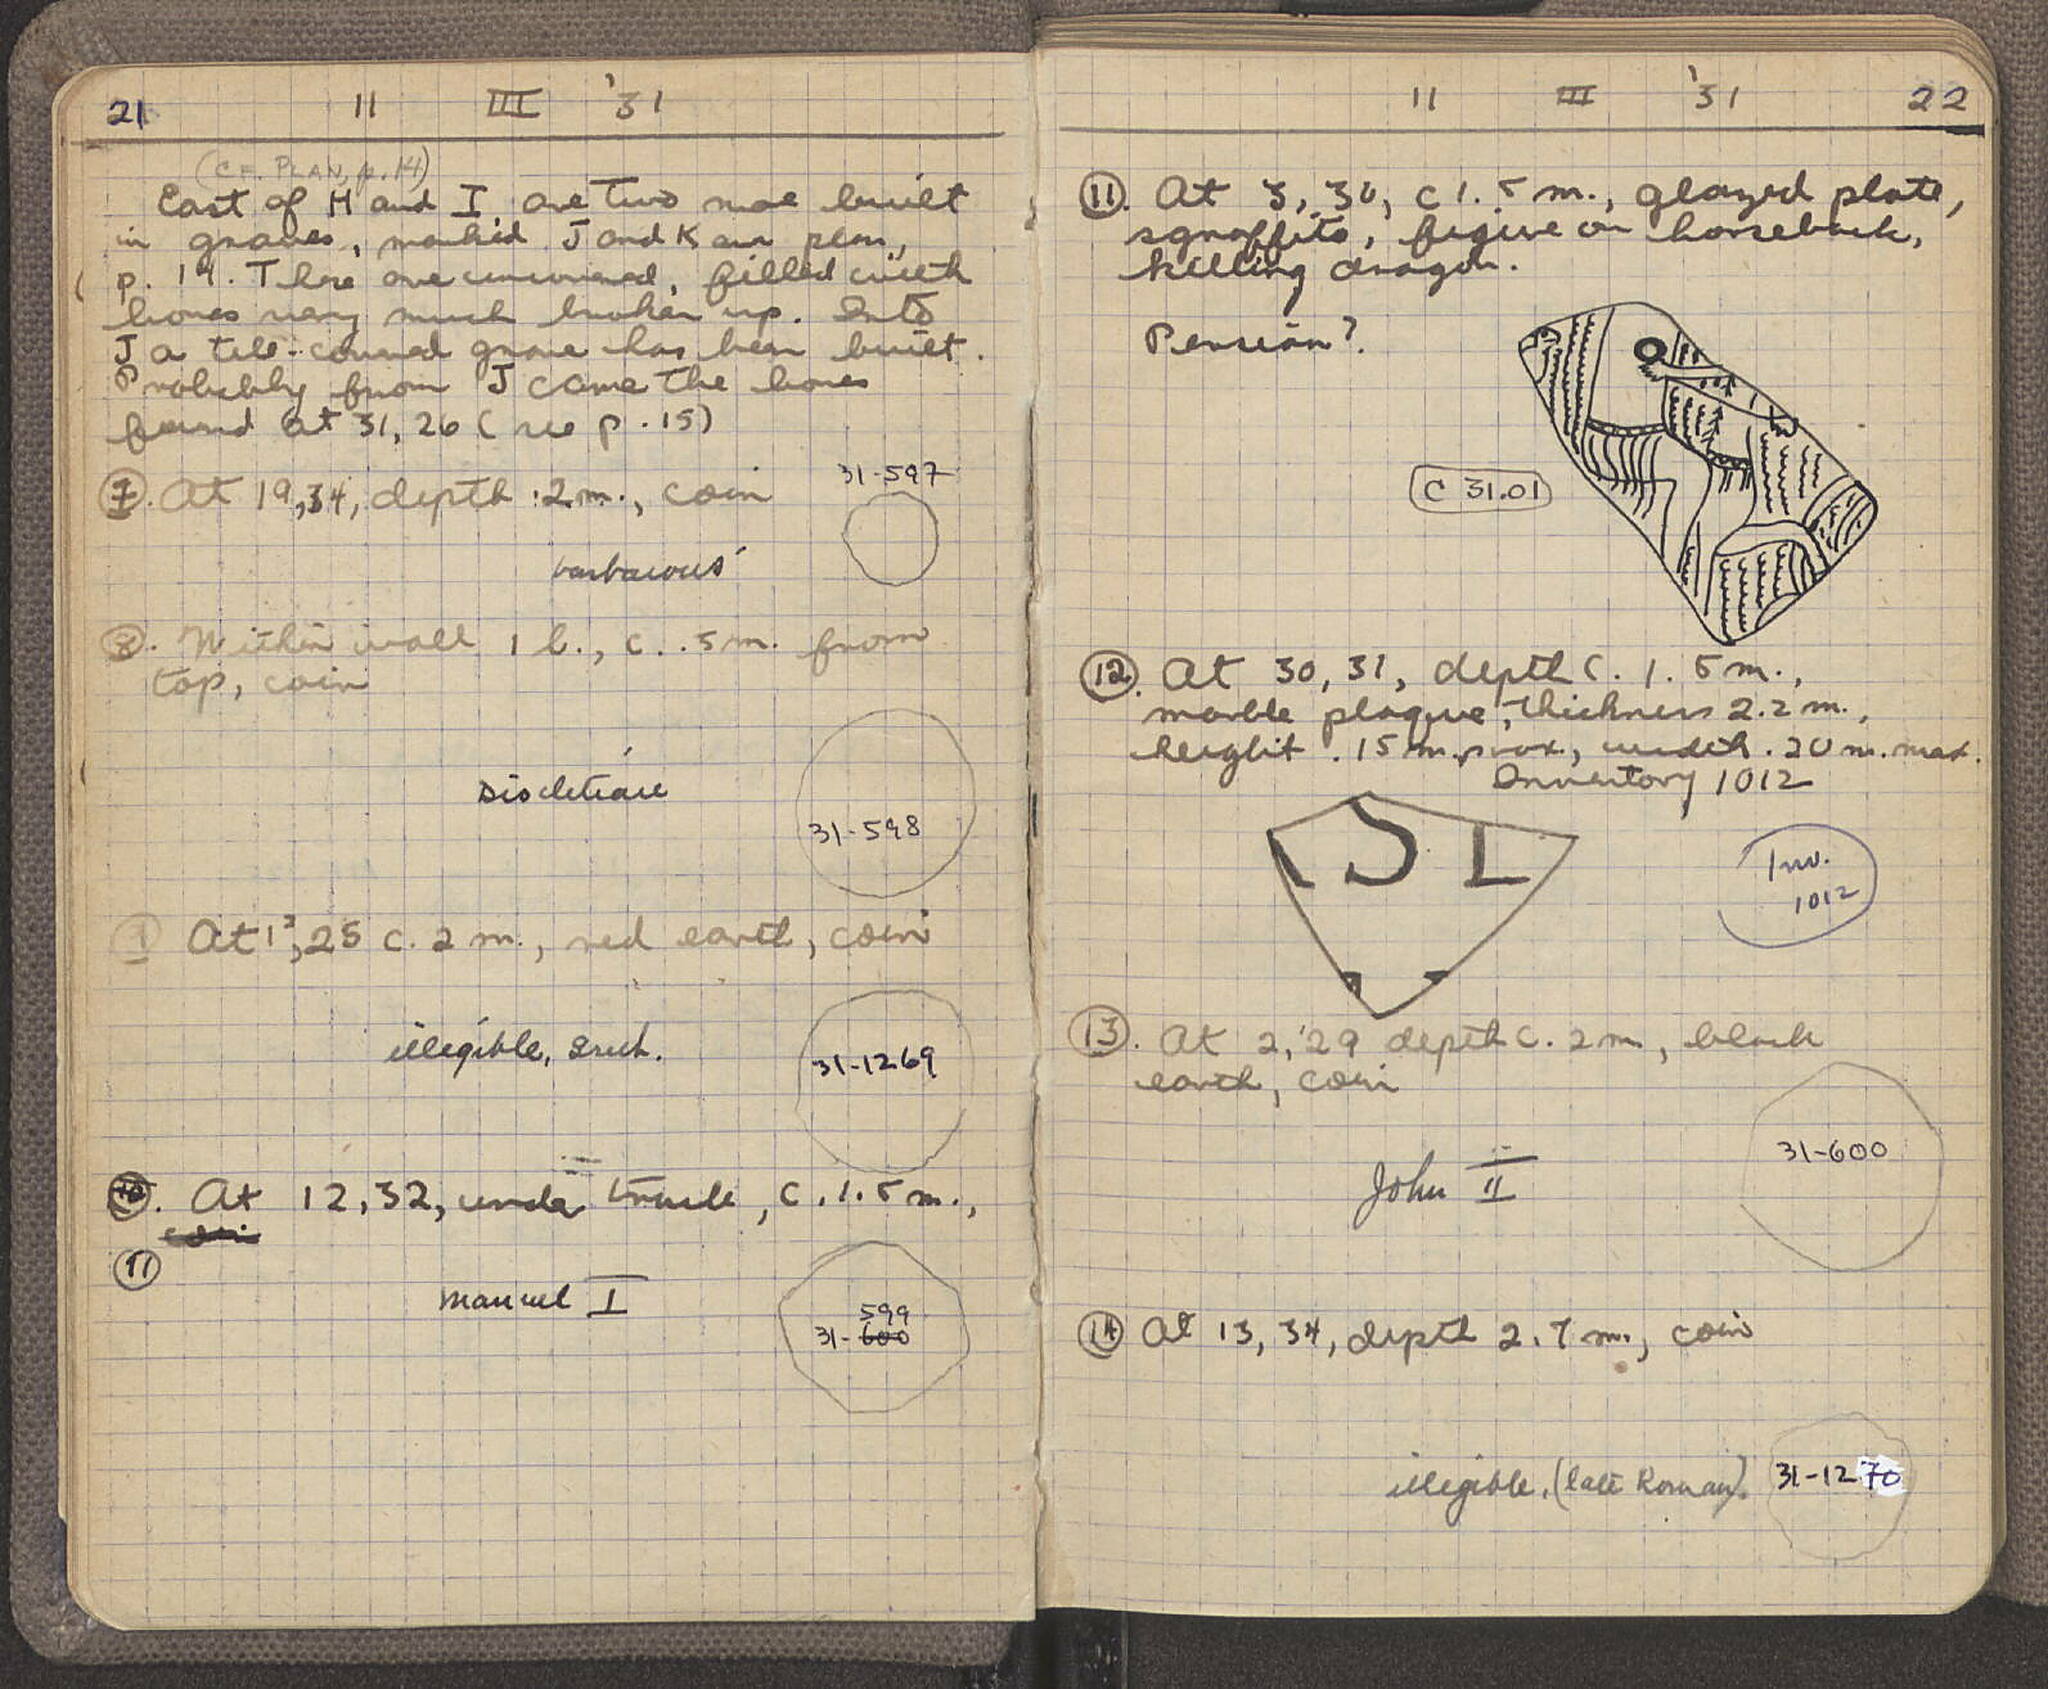 21 11 III '31
(CF. PLAN, p. 14)
East of H and I, are two more built
in graves, marked J and K on plan,
p. 14. These are uncovered, filled with
bones very much broken up. Into
J a tile-covered grave has been built.
Probably from J came the bones
found at 31, 26 (see p. 15)
7. At 19,34, depth .2 m., coin
31-597
barbarous
8. Within wall 1 b., c. .5 m. from
top, coin
31-598
At 25 c. 2 m., red earth, coin
illegible,
31-1269
10. At 12, 32, under c. 1.5 m.,
coin
11
Manuel I
599
31-600
11 III '31 22
11. At 3, 30, c 1.5 m., glazed plate,
sgraffito, figure on horseback,
killing dragon.
Persian?
C 31.01
12. At 30, 31, depth c. 1.5 m.,
marble plaque, thickness 2.2 m.,
height .15 m. width .20 m. max.
Inventory 1012
S L
Inv.
1012
13. At 2, 29 depth c. 2 m, black
earth, coin
31-600
John II
14 At 13, 34, depth 2.7 m., coin
illegible, (late Roman). 31-1270